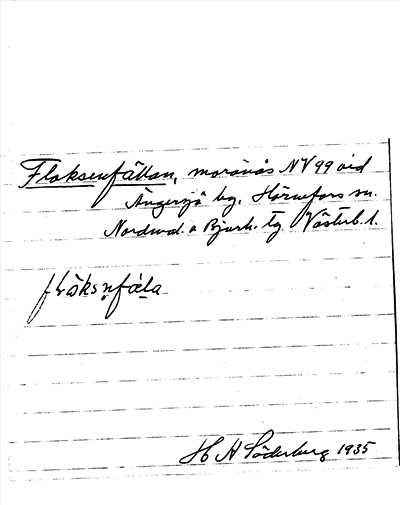 Flaksenfällan, moränås NV 99 vid
Ängersjö by, Hörnefors sn.
Nordmal. o Bjurh. tg. Västerb. l.
flaksn̥fäla
H A Söderberg 1935